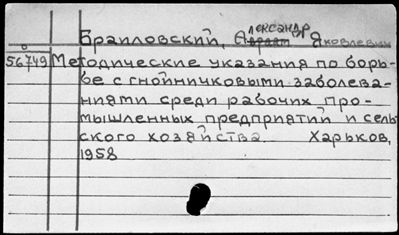 Александр
Браиловский, Абрам Яковлевич
56749 Методические указания по борь-
бе с гнойничковыми заболева-
ниями среди рабочих про-
мышленных предприятий и сель-
ского хозяйства Харьков,
1958